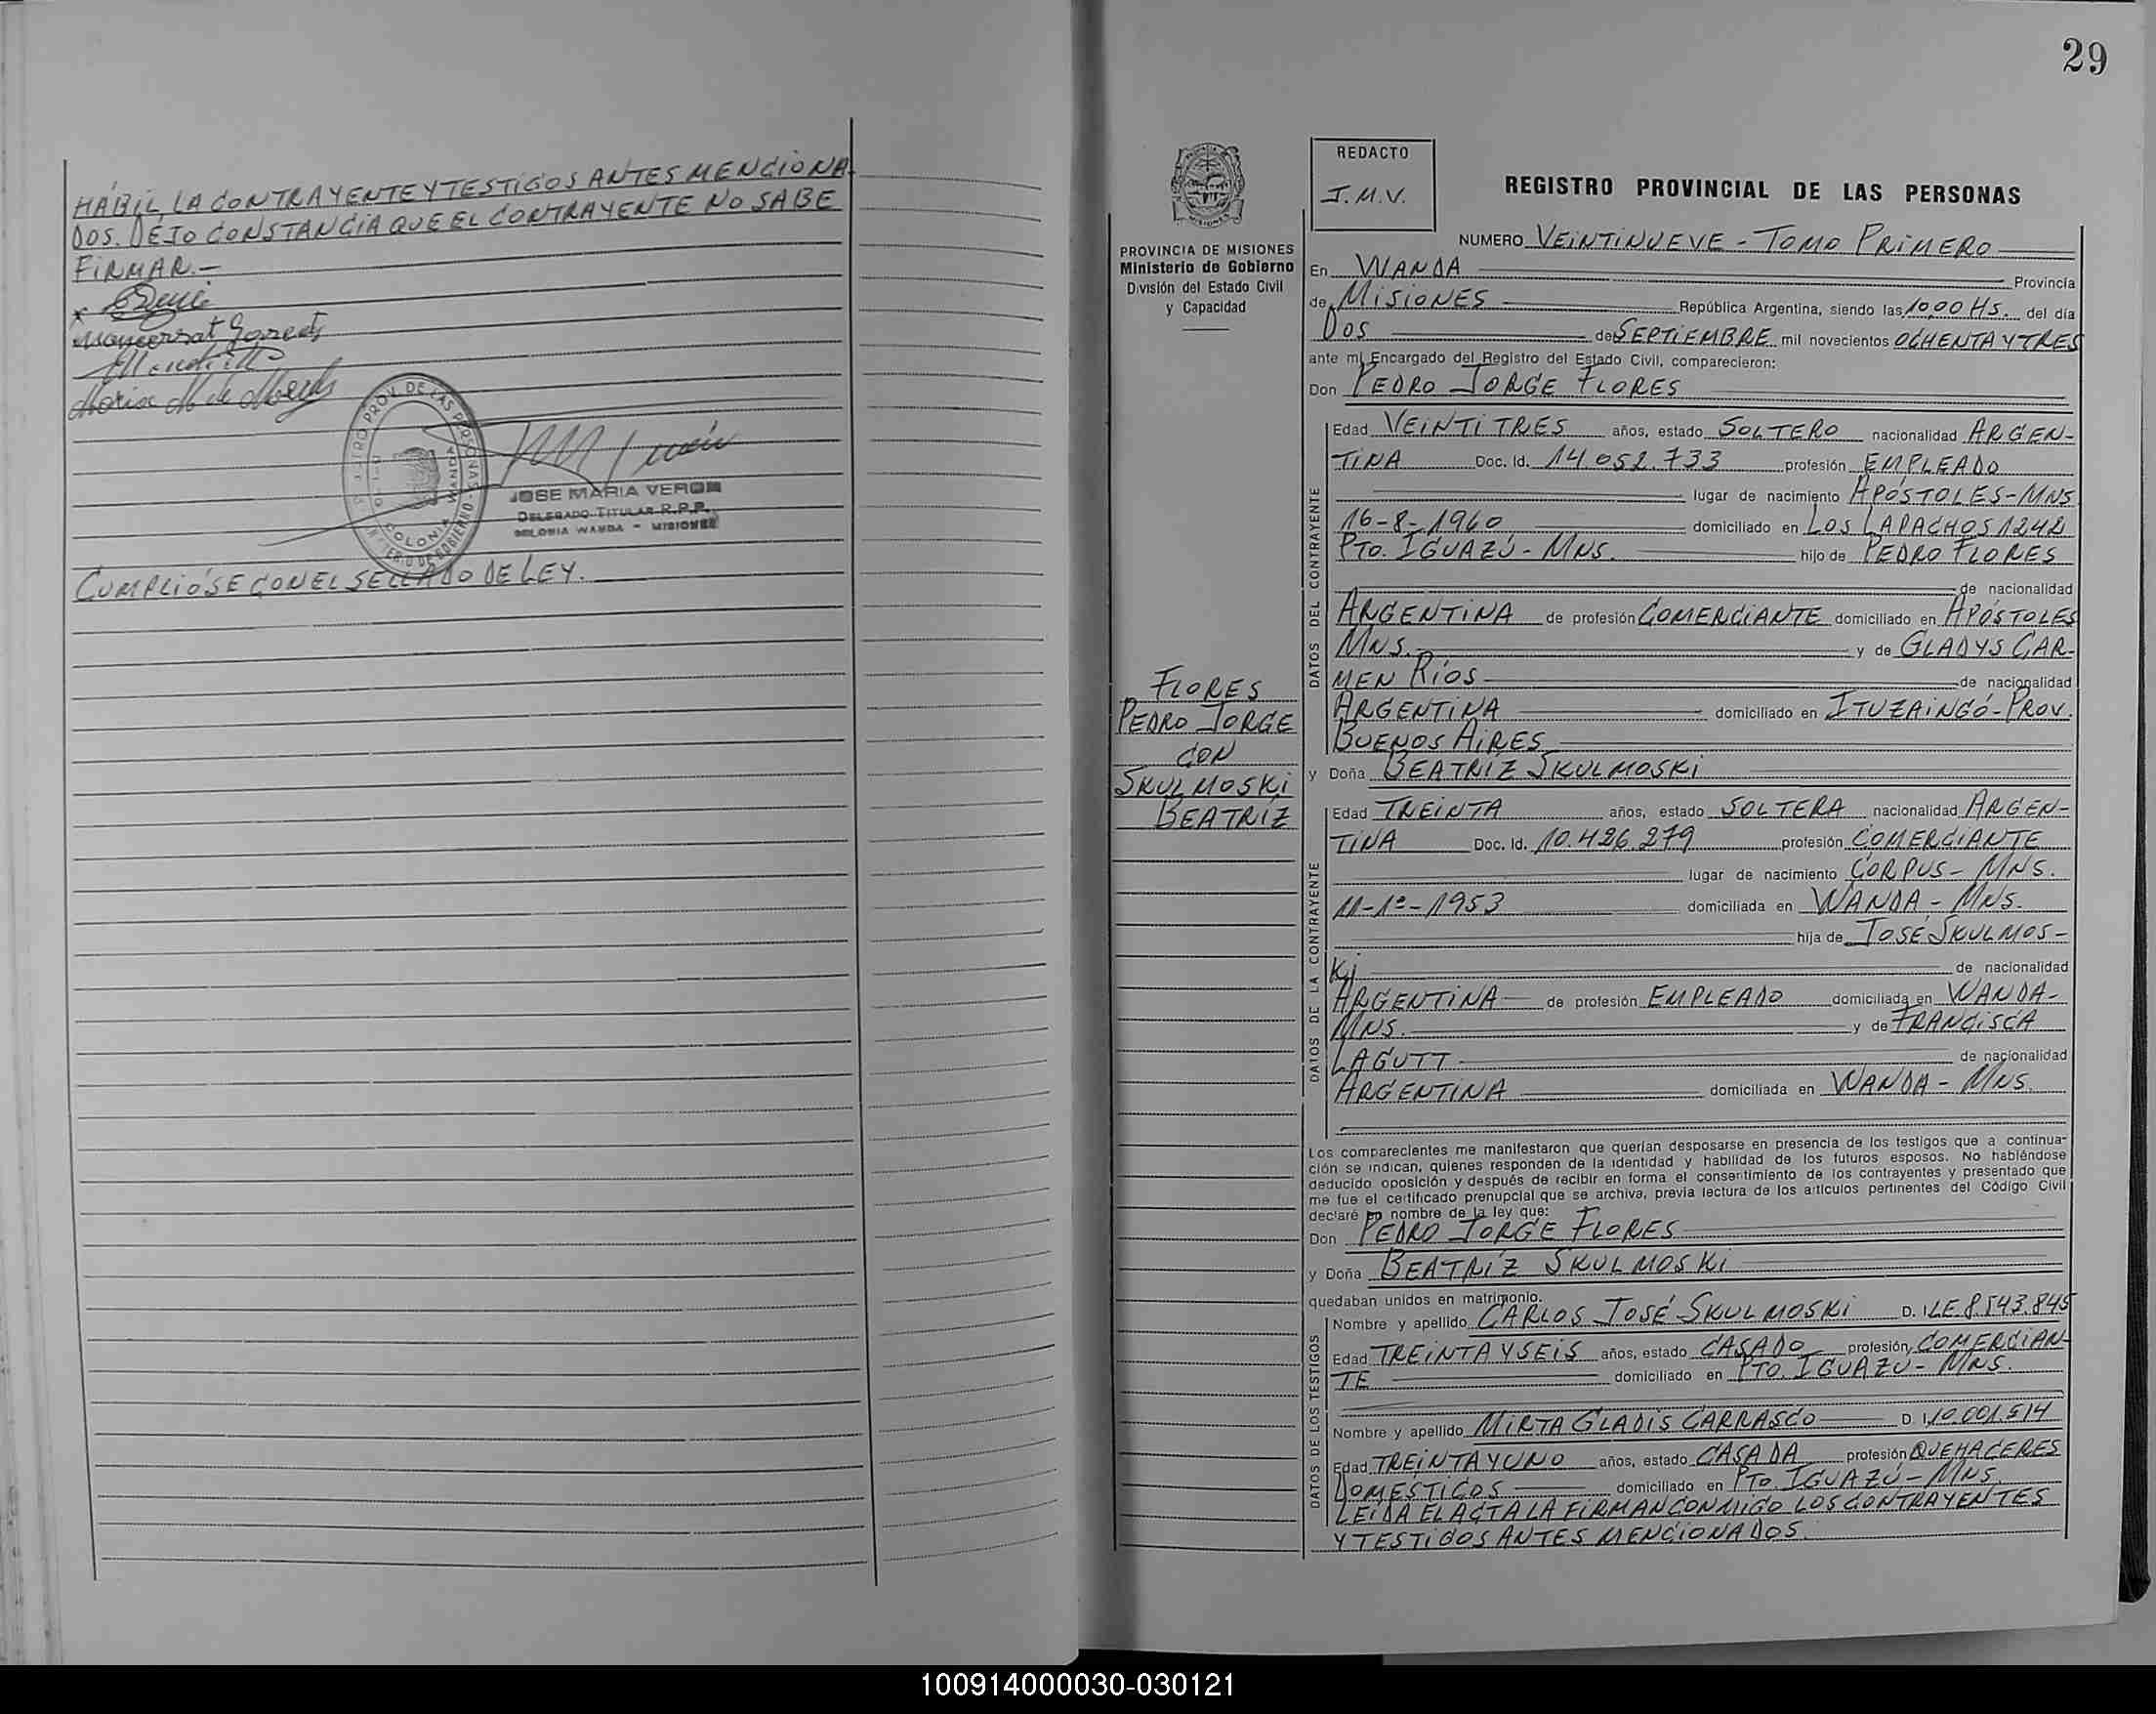 HÁBIL LA CONTRAYENTE Y TESTIGOS ANTES MENCIONA
DOS. DEJO CONSTANCIA QUE EL CONTRAYENTE NO SABE
FIRMAR.-
JOSE MARIA VERON
DELEGADO TITULAR R.P.P.
COLONIA WANDA - MISIONES
CUMPLIÓSE CON EL SELLADO DE LEY.
29
REDACTO
J.M.V.
REGISTRO PROVINCIAL DE LAS PERSONAS
PROVINCIA DE MISIONES
Ministerio de Gobierno
División del Estado Civil
y Capacidad
FLORES
PEDRO JORGE
CON
SKULMOSKI
BEATRÍZ
NUMERO VEINTINUEVE - TOMO PRIMERO
En WANDA Provincia
de MISIONES República Argentina, siendo las 10,00 HS. del día
DOS de SEPTIEMBRE mil novecientos OCHENTA Y TRES
ante mí Encargado del Registro del Estado Civil, comparecieron:
Don PEDRO JORGE FLORES
DATOS DEL CONTRAYENTE
Edad VEINTITRES años, estado SOLTERO nacionalidad ARGEN-
TINA Doc. Id. 14.052.733 profesión EMPLEADO
lugar de nacimiento APÓSTOLES-MNS
16-8-1960 domiciliado en LOS LAPACHOS 1242
PTO. IGUAZÚ - MNS. hijo de PEDRO FLORES
de nacionalidad
ARGENTINA de profesión COMERCIANTE domiciliado en APÓSTOLES
MNS. y de GLADYS CAR-
MEN RÍOS de nacionalidad
ARGENTINA domiciliado en ITUZAINGÓ-PROV.
BUENOS AIRES
y Doña BEATRÍZ SKULMOSKI
DATOS DE LA CONTRAYENTE
Edad TREINTA años, estado SOLTERA nacionalidad ARGEN-
TINA Doc. Id. 10.426.279 profesión COMERCIANTE
lugar de nacimiento CORPUS - MNS.
11-1º-1953 domiciliada en WANDA - MNS.
hija de JOSÉ SKULMOS-
KI de nacionalidad
ARGENTINA de profesión EMPLEADO domiciliada en WANDA-
MNS. y de FRANCISCA
LAGUTT de nacionalidad
ARGENTINA domiciliada en WANDA - MNS.
Los comparecientes me manifestaron que querían desposarse en presencia de los testigos que a continua-
ción se indican, quienes responden de la identidad y habilidad de los futuros esposos. No habiéndose
deducido oposición y después de recibir en forma el consentimiento de los contrayentes y presentado que
me fue el certificado prenupcial que se archiva, previa lectura de los artículos pertinentes del Código Civil
declaré en nombre de la ley que:
Don PEDRO JORGE FLORES
y Doña BEATRÍZ SKULMOSKI
quedaban unidos en matrimonio.
DATOS DE LOS TESTIGOS
Nombre y apellido CARLOS JOSÉ SKULMOSKI D. I. LE. 8.543.845
Edad TREINTA Y SEIS años, estado CASADO profesión COMERCIAN-
TE domiciliado en PTO. IGUAZÚ - MNS.
Nombre y apellido MIRTA GLADIS CARRASCO D. I. 10.001.514
Edad TREINTA Y UNO años, estado CASADA profesión QUEHACERES
DOMÉSTICOS domiciliado en PTO. IGUAZÚ - MNS.
LEIDA EL ACTA LA FIRMAN CONMIGO LOS CONTRAYENTES
Y TESTIGOS ANTES MENCIONADOS.
100914000030-030121